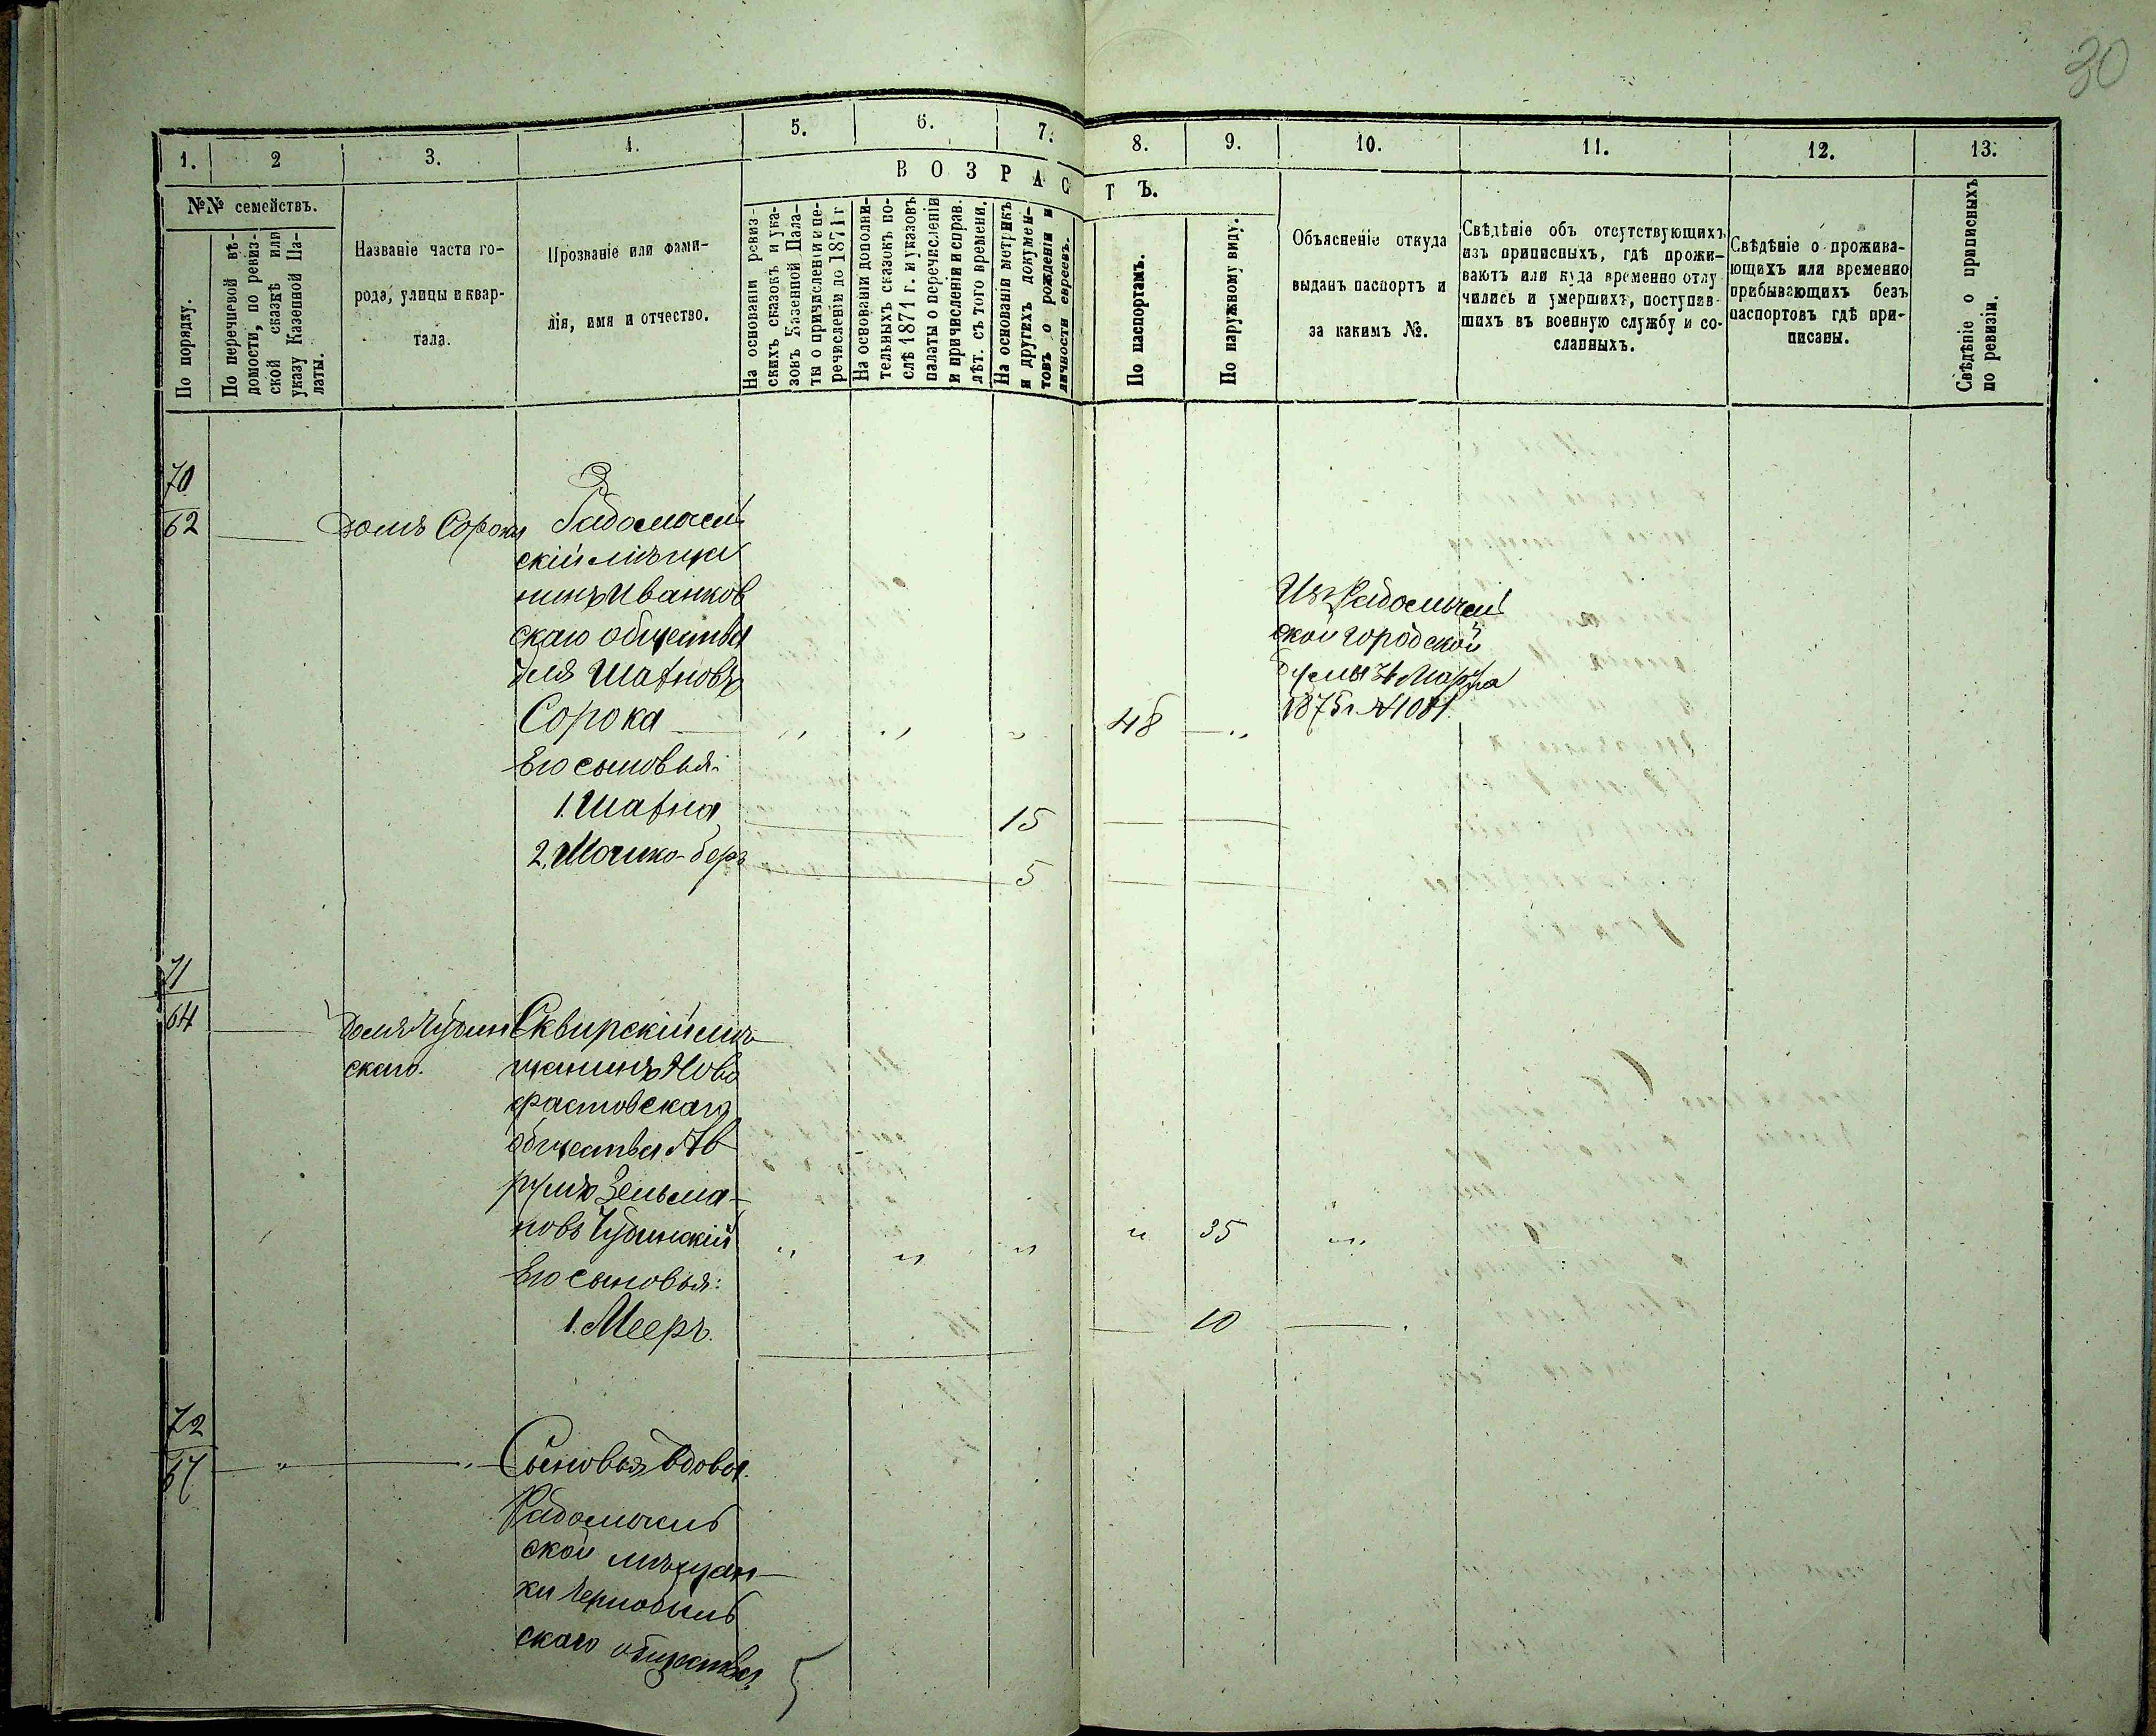 30
1.
2
3.
4.
5.
6.
7.
8.
9.
10.
11.
12.
13.
ВОЗРАСТЪ.
№№ семействъ.
По порядку.
По перечневой вѣ-
домости, по ревиз-
ской сказкѣ или
указу Казенной Па-
латы.
Названіе части го-
рода, улицы и квар-
тала.
Прозваніе или фами-
лія, имя и отчество.
На основаніи ревиз-
скихъ сказокъ и ука-
зовъ Казенной Пала-
ты о причисленіи и пе-
речисленіи до 1871 г
На основаніи дополни-
тельныхъ сказокъ по-
слѣ 1871 г. и указовъ
палаты о перечисленіи
и причисленіи и справ.
лѣт. съ того времени.
На основаніи метрикъ
и другихъ докумен-
товъ о рожденіи и
личности евреевъ.
По паспортамъ.
По наружному виду.
Объясненіе откуда
выданъ паспортъ и
за какимъ №.
Свѣдѣніе объ отсутствующихъ
изъ приписныхъ, гдѣ прожи-
ваютъ или куда временно отлу
чились и умершихъ, поступив-
шихъ въ военную службу и со-
сланныхъ.
Свѣдѣніе о прожива-
ющихъ или временно
прибывающихъ безъ
паспортовъ гдѣ при-
писаны.
Свѣдѣніе о приписныхъ
по ревизіи.
70
62
домъ Сороки
Радомысль
скій мѣща
нинъ Иванков
скаго общества
Шавновъ
Сорока " " " 48 "
Изъ Радомысль
ской городской
думы 4 Марта
1875 г. №
Его сыновья:
1. Шавна 15
2. Мошко-беръ 5
71
64
домъ Чудин
скаго.
Сквирскій мѣ
щанинъ Ново
фастовскаго
общества Ав
румъ Зельма-
новъ Чудинскій " " " " 35 "
Его сыновья:
1. Мееръ. 10
72
67
" "
Сыновья вдовы
Радомысль
ской мѣщан-
ки Чернобыль
скаго общества